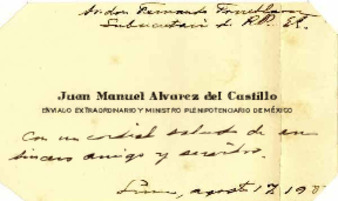 Fernando
Subsecretario de RR. EE.
Juan Manuel Alvarez del Castillo
ENVIADO EXTRAORDINARIO Y MINISTRO PLENIPOTENCIARIO DE MÉXICO
Con un cordial saludo de su
sincero amigo y servidor.
Lima, agosto 17, 19